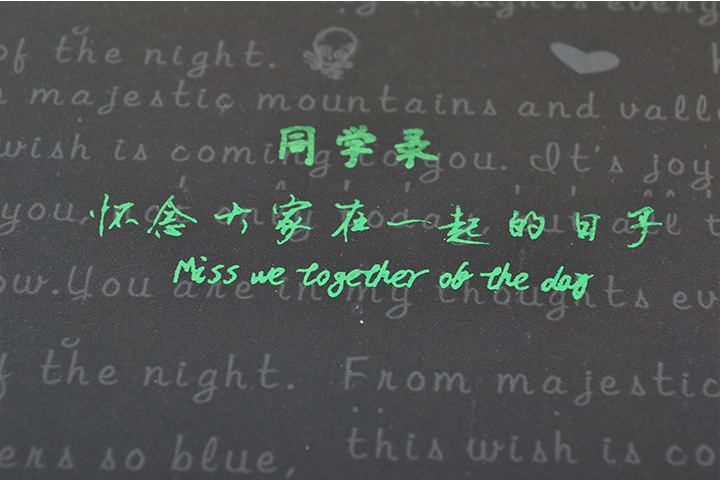 thoughts every
of the night.
majestic mountains and vall
wish is coming to you. It's joy
同学录
you,
怀念大家在一起的日子
ow. You are in my thoughts ev
Miss we together of the day
f the night. From majestic
ers so blue, this wish is co